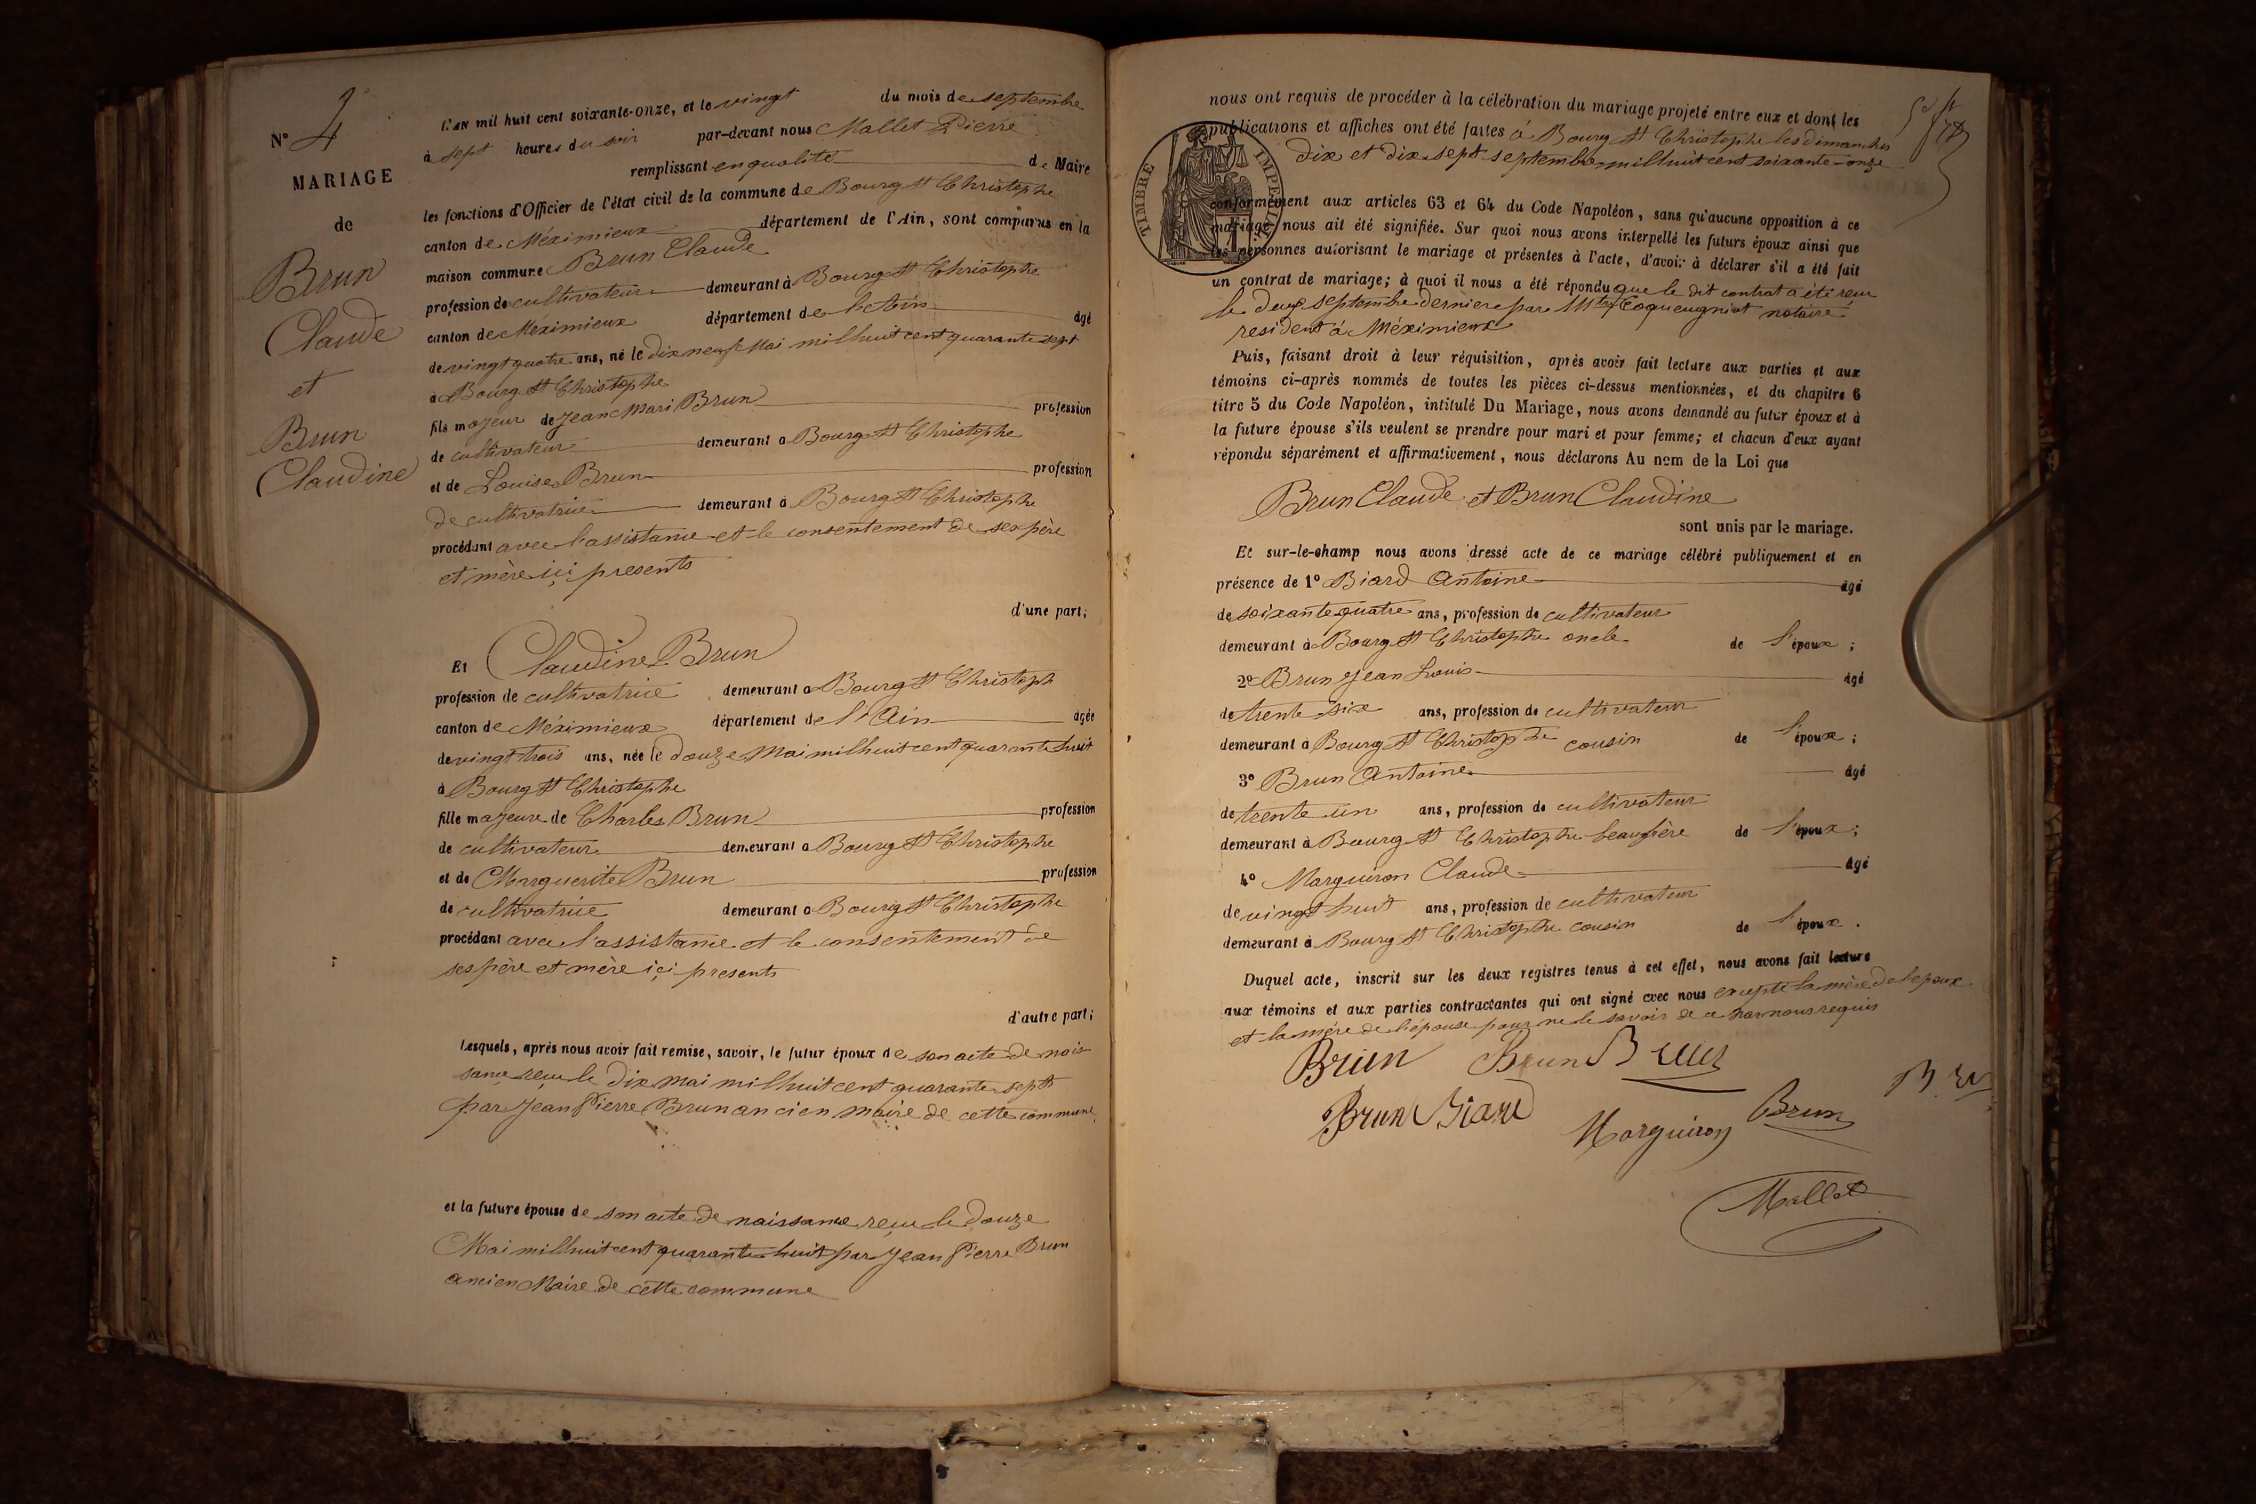 N° 4
MARIAGE
de
Brun
Claude
et
Brun
Claudine
L'AN mil huit cent soixante-onze, et le vingt du mois de septembre
à sept heures du soir par-devant nous Mallet Pierre
remplissant en qualité de Maire
les fonctions d'Officier de l'état civil de la commune de Bourg St Christophe
canton de Méximieux département de l'Ain, sont comparus en la
maison commune Brun Claude
profession de cultivateur demeurant à Bourg St Christophe
canton de Méximieux département de l'Ain âgé
de vingt quatre ans, né le dix neuf Mai mil huit cent quarante sept
à Bourg St Christophe
fils majeur de Jean Mari Brun profession
de cultivateur demeurant à Bourg St Christophe
et de Louise Brun profession
de cultivatrice demeurant à Bourg St Christophe
procédant avec l'assistance et le consentement de ses père
et mère içi presents
d'une part;
Et Claudine Brun
profession de cultivatrice demeurant à Bourg St Christoph
canton de Méximieux département de l'Ain âgée
de vingt trois ans, née le douze Mai mil huit cent quarante huit
à Bourg St Christophe
fille majeure de Charles Brun profession
de cultivateur demeurant à Bourg St Christophe
et de Marguerite Brun profession
de cultivatrice demeurant à Bourg St Christophe
procédant avec l'assistance et le consentement de
ses père et mère içi presents
d'autre part;
Lesquels, après nous avoir fait remise, savoir, le futur époux de son acte de nais
sance reçu le dix Mai mil huit cent quarante sept
par Jean Pierre Brun ancien maire de cette commune
et la future épouse de son acte de naissance reçu le douze
Mai mil huit cent quarante huit par Jean Pierre Brun
ancien Maire de cette commune
nous ont requis de procéder à la célébration du mariage projeté entre eux et dont les
publications et affiches ont été faites à Bourg St Christophe les dimanches
dix et dix sept septembre mil huit cent soixante onze
TIMBRE IMPERIAL
conformément aux articles 63 et 64 du Code Napoléon, sans qu'aucune opposition à ce
mariage nous ait été signifiée. Sur quoi nous avons interpellé les futurs époux ainsi que
les personnes autorisant le mariage et présentes à l'acte, d'avoir à déclarer s'il a été fait
un contrat de mariage; à quoi il nous a été répondu que le dit contrat a été reçu
le deux septembre dernier par Mtre Coqueugniot notaire
resident à Méximieux
Puis, faisant droit à leur réquisition, après avoir fait lecture aux parties et aux
témoins ci-après nommés de toutes les pièces ci-dessus mentionnées, et du chapitre 6
titre 5 du Code Napoléon, intitulé Du Mariage, nous avons demandé au futur époux et à
la future épouse s'ils veulent se prendre pour mari et pour femme; et chacun d'eux ayant
répondu séparément et affirmativement, nous déclarons Au nom de la Loi que
Brun Claude et Brun Claudine
sont unis par le mariage.
Et sur-le-champ nous avons dressé acte de ce mariage célébré publiquement et en
présence de 1° Biard Antoine âgé
de soixante quatre ans, profession de cultivateur
demeurant à Bourg St Christophe oncle de l'époux ;
2° Brun Jean Louis âgé
de trente six ans, profession de cultivateur
demeurant à Bourg St Christophe cousin de l'époux ;
3° Brun Antoine âgé
de trente un ans, profession de cultivateur
demeurant à Bourg St Christophe beaufrère de l'époux ;
4° Marguiron Claude âgé
de vingt huit ans, profession de cultivateur
demeurant à Bourg St Christophe cousin de l'époux .
Duquel acte, inscrit sur les deux registres tenus à cet effet, nous avons fait lecture
aux témoins et aux parties contractantes qui ont signé avec nous excepté la mère de l'époux
et la mère de l'épouse pour ne le savoir de ce par nous requis
Brun Brun Brun
Brun Biard Marguiron Brun
Mallet